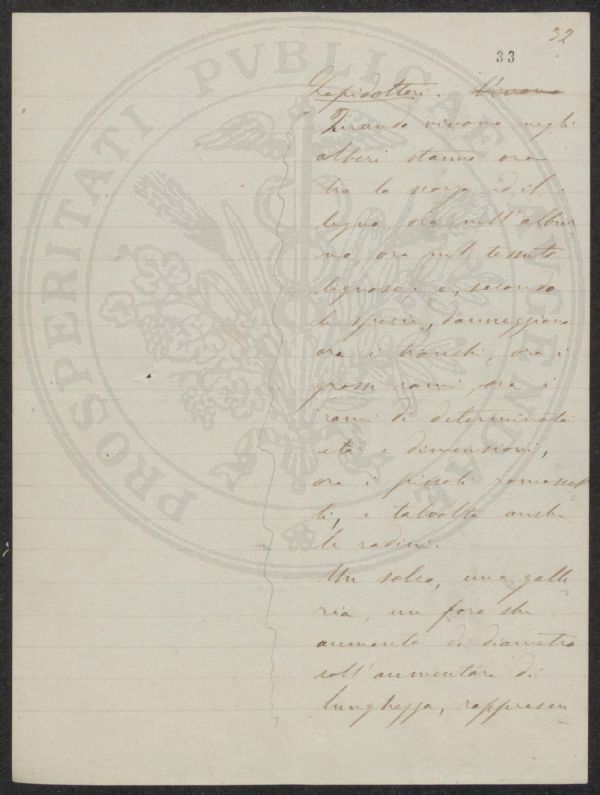 32
33
Lepidotteri. Vivono
Quando vivono negli
alberi stanno ora
tra la scorza ed il
legno, ora nell'albur
no, ora nel tessuto
legnoso: e, secondo
le specie, danneggiano
ora i tronchi, ora i
grossi rami, ora i
rami di determinata
età e dimensioni,
ora i piccoli ramoscel
li, e talvolta anche
le radici.
Un solco, una galle
ria, un foro che
aumenta di diametro
coll'aumentare di
lunghezza, rappresen
PROSPERITATI PVBLICAE AVGENDAE